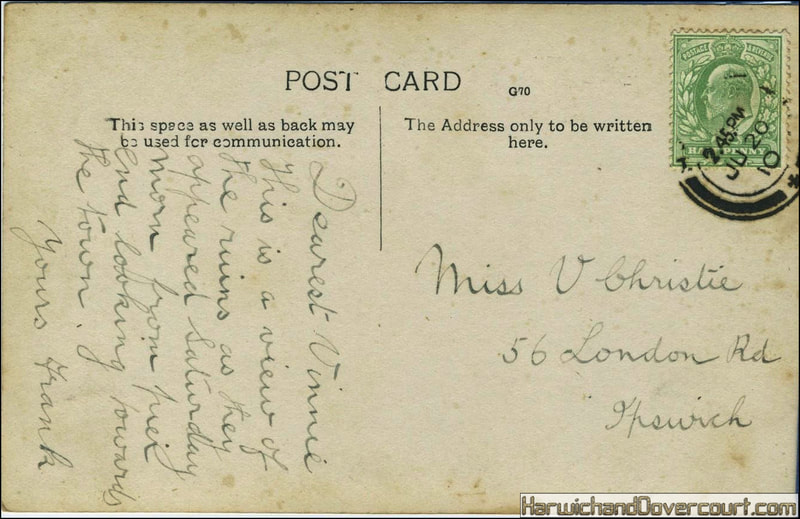 POST CARD
G70
This space as well as back may
be used for communication.
The Address only to be written
here.
POSTAGE & REVENUE
HALFPENNY
2.45 PM
JU 20
10
Dearest Vinnie
this is a view of
the ruins as they
appeared Saturday
morn from pier
end looking towards
the town.
Yours Frank
Miss V Christie
56 London Rd
Ipswich
HarwichandDovercourt.com